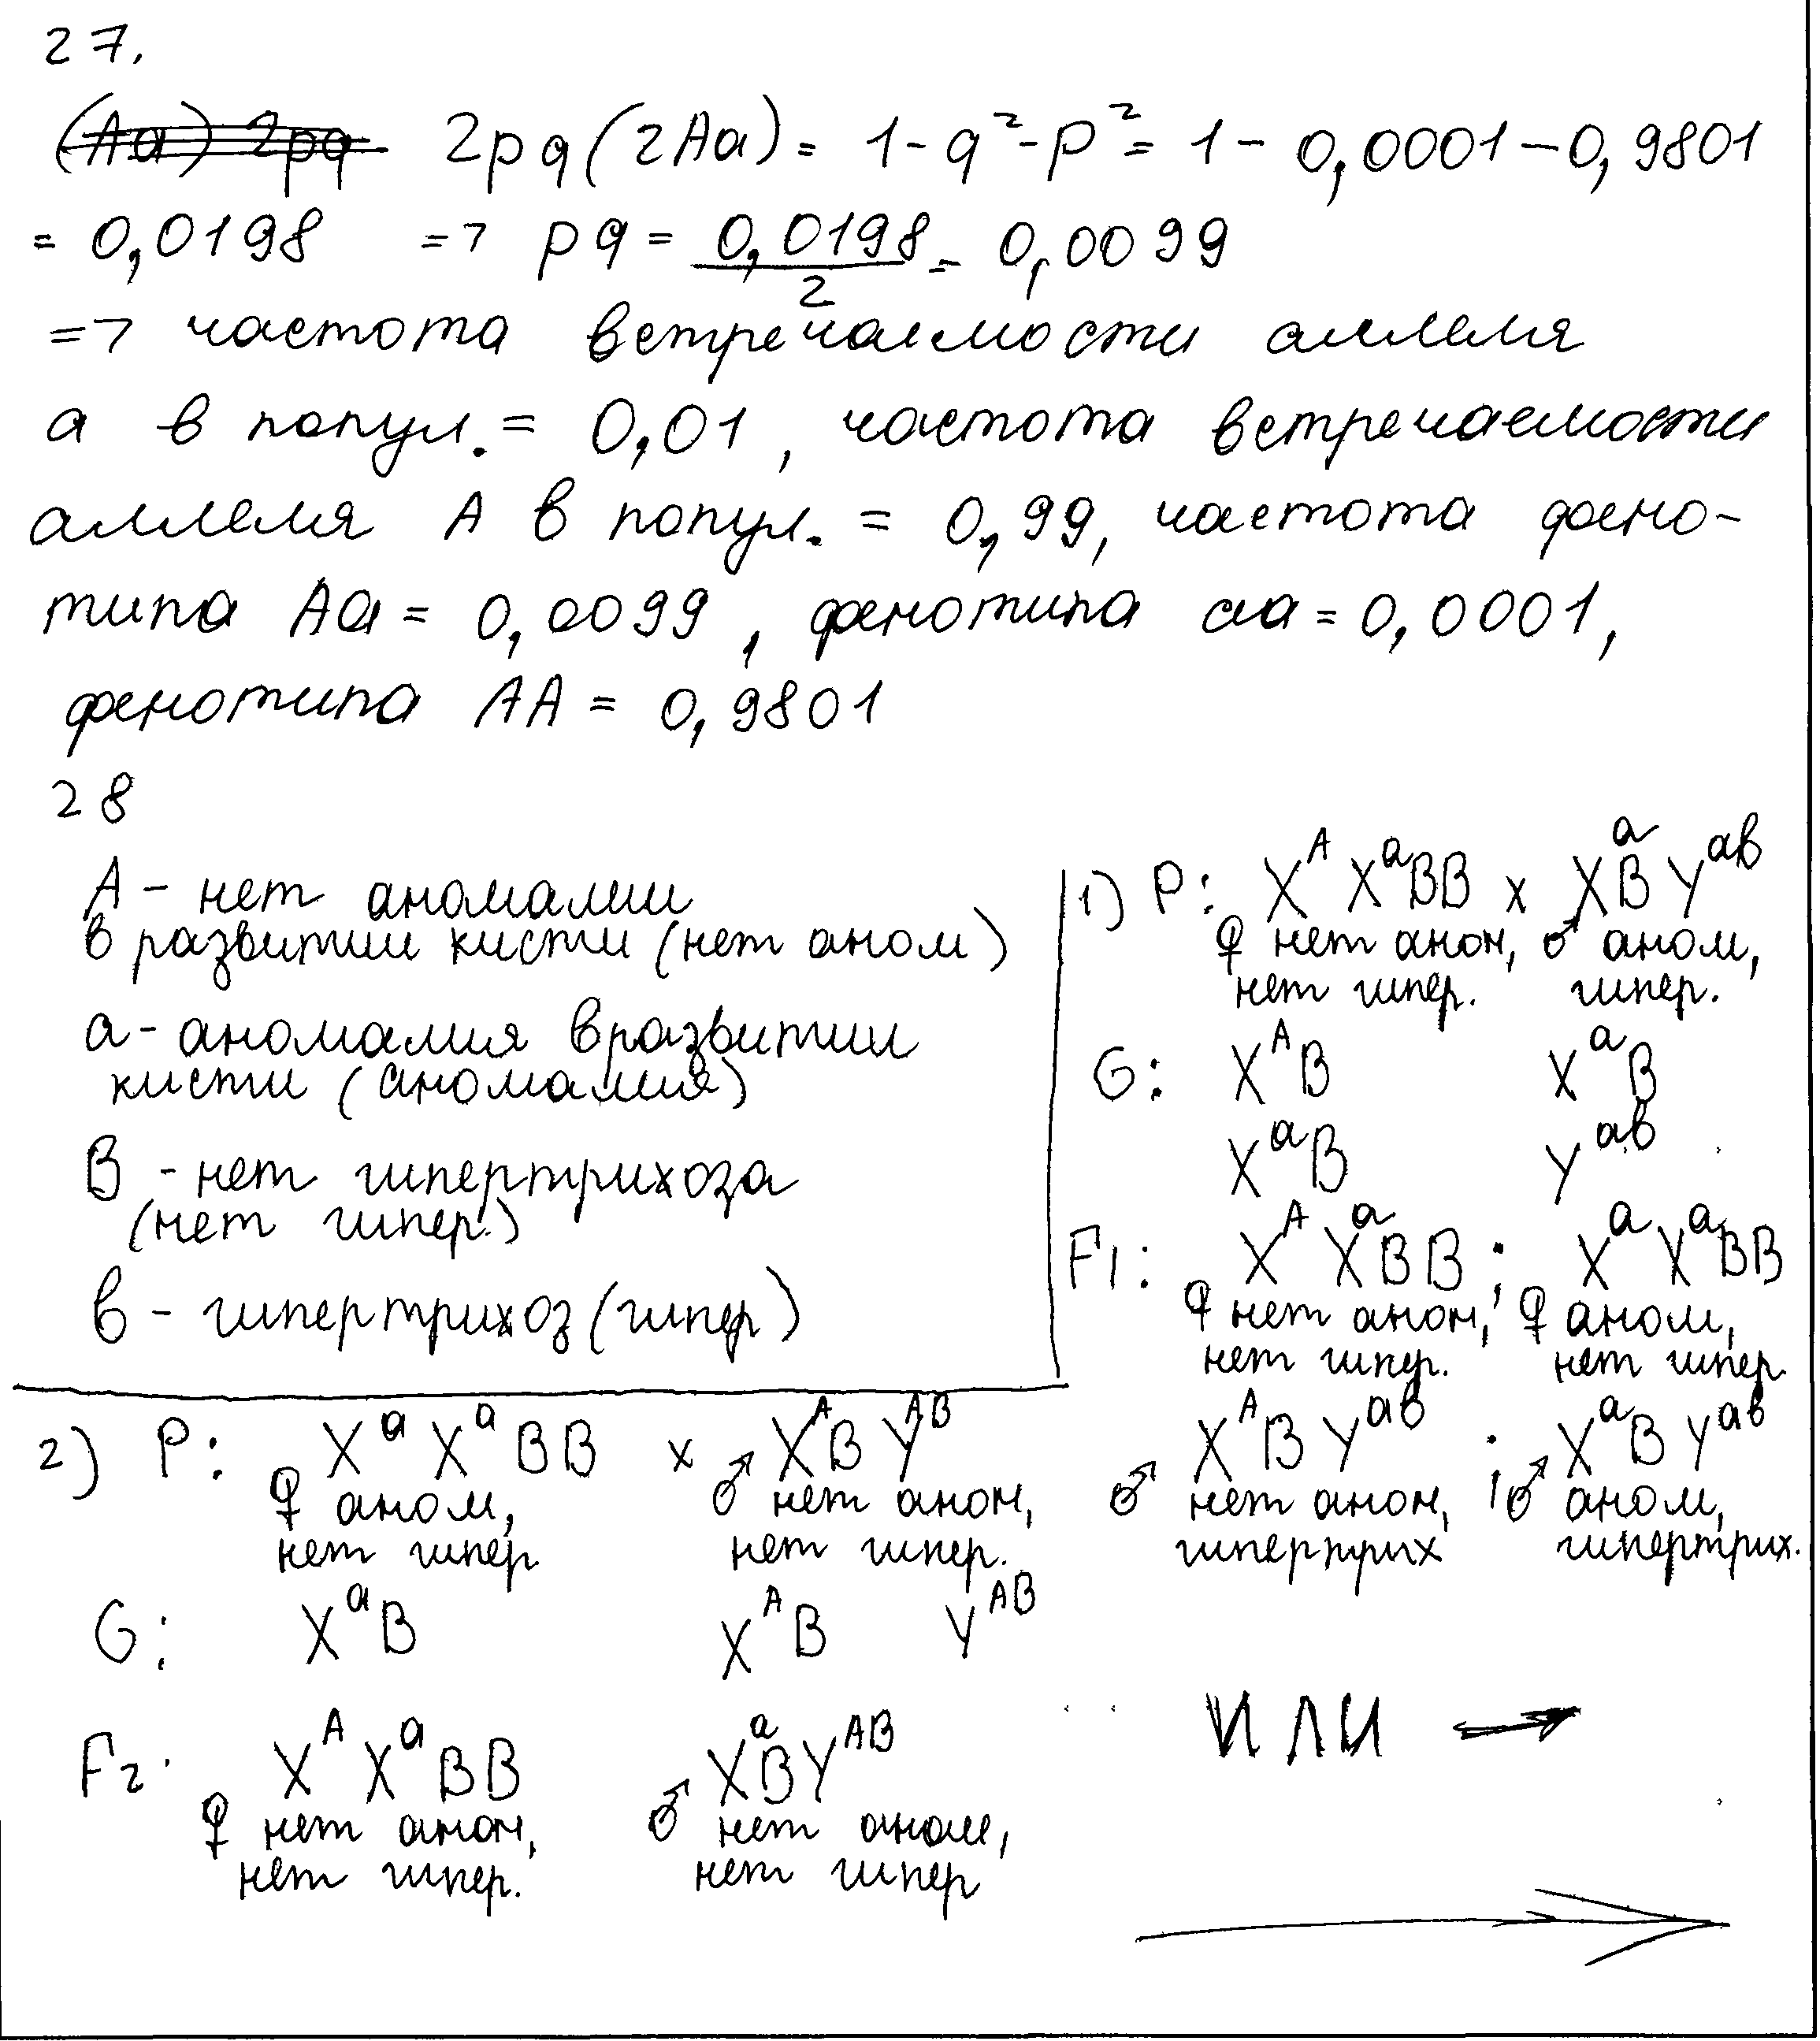 27.
(Aa) 2pq 2pq (2Aa) = 1 - q² - p² = 1 - 0,0001 - 0,9801
= 0,0198 => pq = 0,0198/2 = 0,0099
=> частота встречаемости аллеля
а в попул. = 0,01, частота встречаемости
аллеля А в попул. = 0,99, частота фено-
типа Аа = 0,0099, фенотипа аа = 0,0001,
фенотипа АА = 0,9801
28
А - нет аномалии
в развитии кисти (нет аном)
а - аномалия в развитии
кисти (аномалия)
В - нет гипертрихоза
(нет гипер.)
в - гипертрихоз (гипер)
1) P: X^A X^a BB x X^a B Y^ab
♀ нет аном, ♂ аном,
нет гипер. гипер.
G: X^A B X^a B
X^a B Y^ab
F1: X^A X^a BB ; X^a X^a BB
♀ нет аном, ; ♀ аном,
нет гипер. нет гипер.
X^A B Y^ab ; X^a B Y^ab
♂ нет аном, ♂ аном,
гипертрих гипертрих.
2) P: X^a X^a BB x X^A B Y^AB
♀ аном, ♂ нет аном,
нет гипер нет гипер.
G: X^a B X^A B Y^AB
F2. X^A X^a BB X^a B Y^AB
♀ нет аном, ♂ нет аном,
нет гипер. нет гипер
ИЛИ →